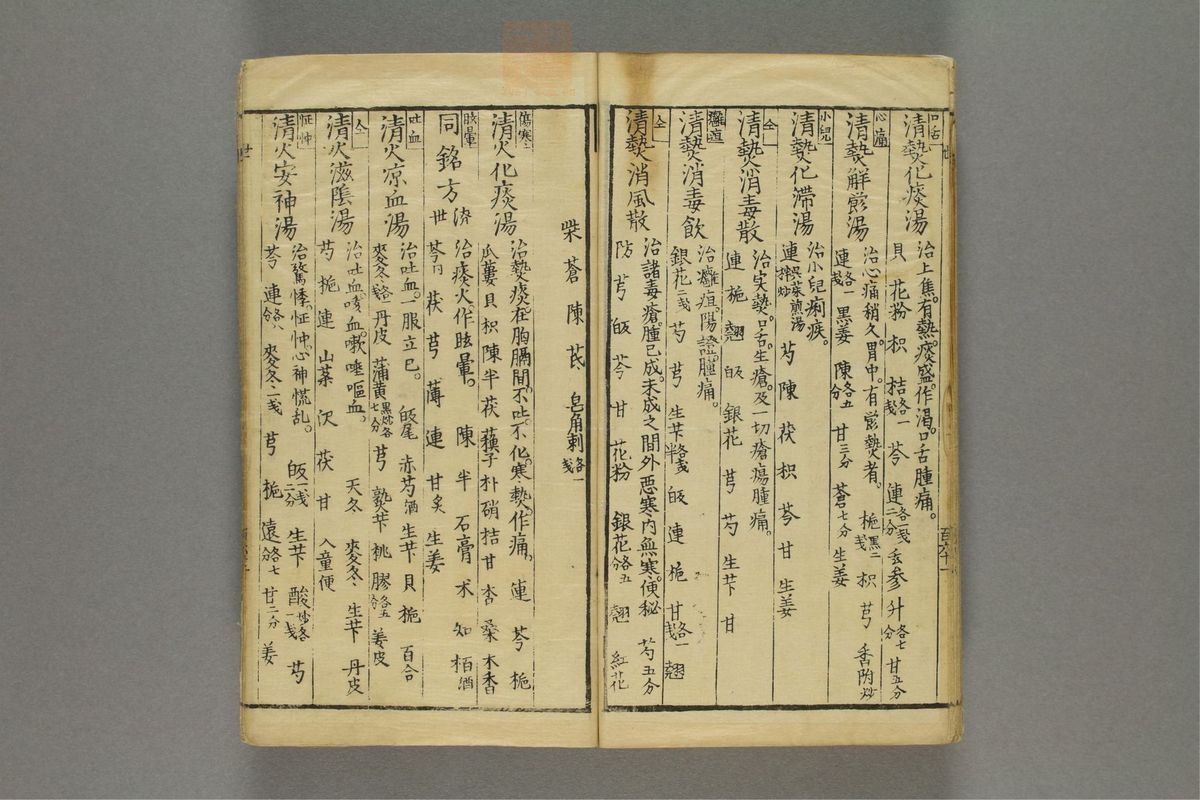 口舌
清𤍠化痰湯
治上焦。有熱。痰盛。作渴。口舌腫痛。
貝 花粉 枳 桔各一戔 芩 連各一戔二分 玄参 升各七分 甘五分
心痛
清𤍠解欝湯
治心痛稍久。胃中。有欝𤍠者。
連各一戔 黒姜 陳各五分 甘三分 蒼七分 生姜 梔黒二戔 枳 芎 香附炒
小兒
清𤍠化滯湯
治小兒痢疾。
連 芍 陳 茯 枳 芩 甘 生姜
仝
清𤍠消毒散
治实𤍠。口舌。生瘡。及一切瘡瘍腫痛。
連 梔 翹 皈 銀花 芎 芍 生芐 甘
癰疽
清𤍠消毒飲
治癰疽。陽證。腫痛。
銀花二戔 芍 芎 生芐各戔半 皈 連 梔 甘各一戔 翹
仝
清𤍠消風散
治諸毒瘡。腫已成。未成之間外惡寒内無寒。便秘
防 芎 皈 芩 甘 花粉 銀花各五分 翹 紅花 芍五分
柴 蒼 陳 芪 皂角刺各一戔
傷寒
清火化痰湯
治𤍠痰在胸膈間。不吐。不化。寒𤍠。作痛。
瓜蔞 貝 枳 陳 半 茯 蘓子 朴硝 桔 甘 杏 桑 木香 連 芩 梔
眩暈
同銘方
済世
治痰火作眩暈。
芩 茯 芎 薄 連 甘炙 生姜 陳 半 石膏 术 知 栢酒
吐血
清火凉血湯
治吐血。一服立已。
皈尾 赤芍酒 生芐 貝 梔 百合
麥冬 丹皮 蒲黄黒炒各七分 芎 𤍠芐 桃 膠各五分 姜皮
仝
清火滋陰湯
治吐血。咳血。嗽 唾嘔血。
天冬 麥冬 生芐 丹皮
芍 梔 連 山茱 沢 茯 甘 入童便
怔忡
清火安神湯
治驚悸。怔忡。心神慌乱。
皈一戔二分 生芐 酸炒各一戔 芍
芩 連各八分 麥冬二戔 芎 梔 遠各七分 甘二分 姜